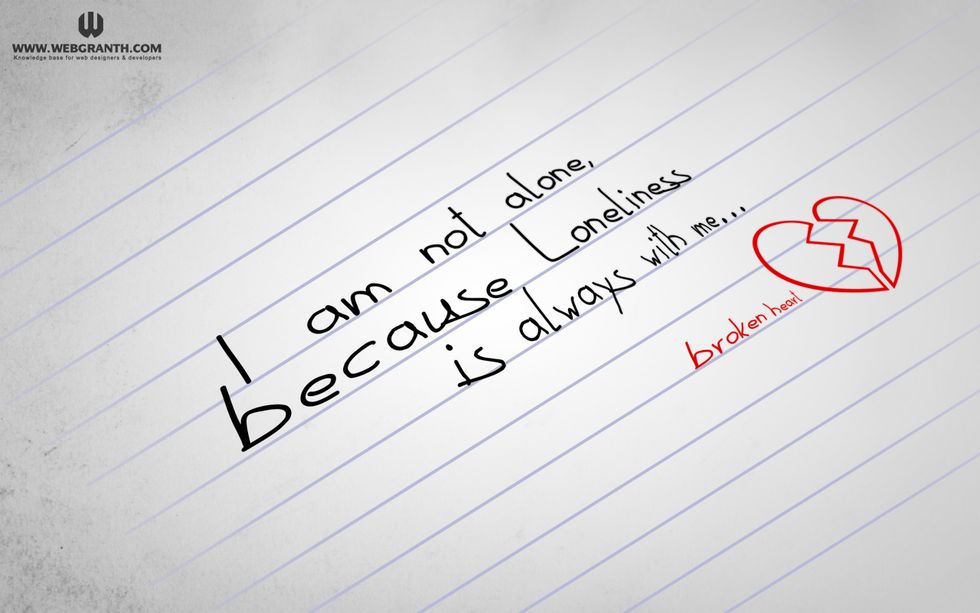 WWW.WEBGRANTH.COM
Knowledge base for web designers & developers
I am not alone,
because Loneliness
is always with me...
broken heart